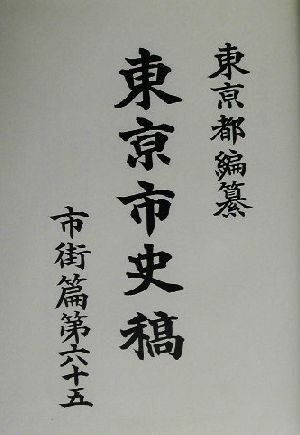 東京都編纂
東京市史稿
市街篇第六十五